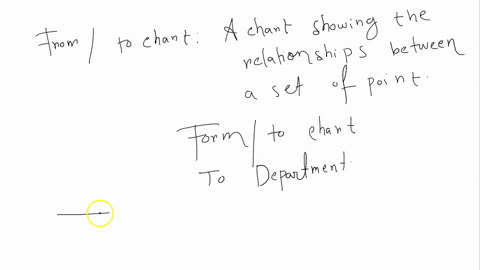 From / to chart: A chart showing the
relationships between
a set of point.
Form / to chart
To Department.